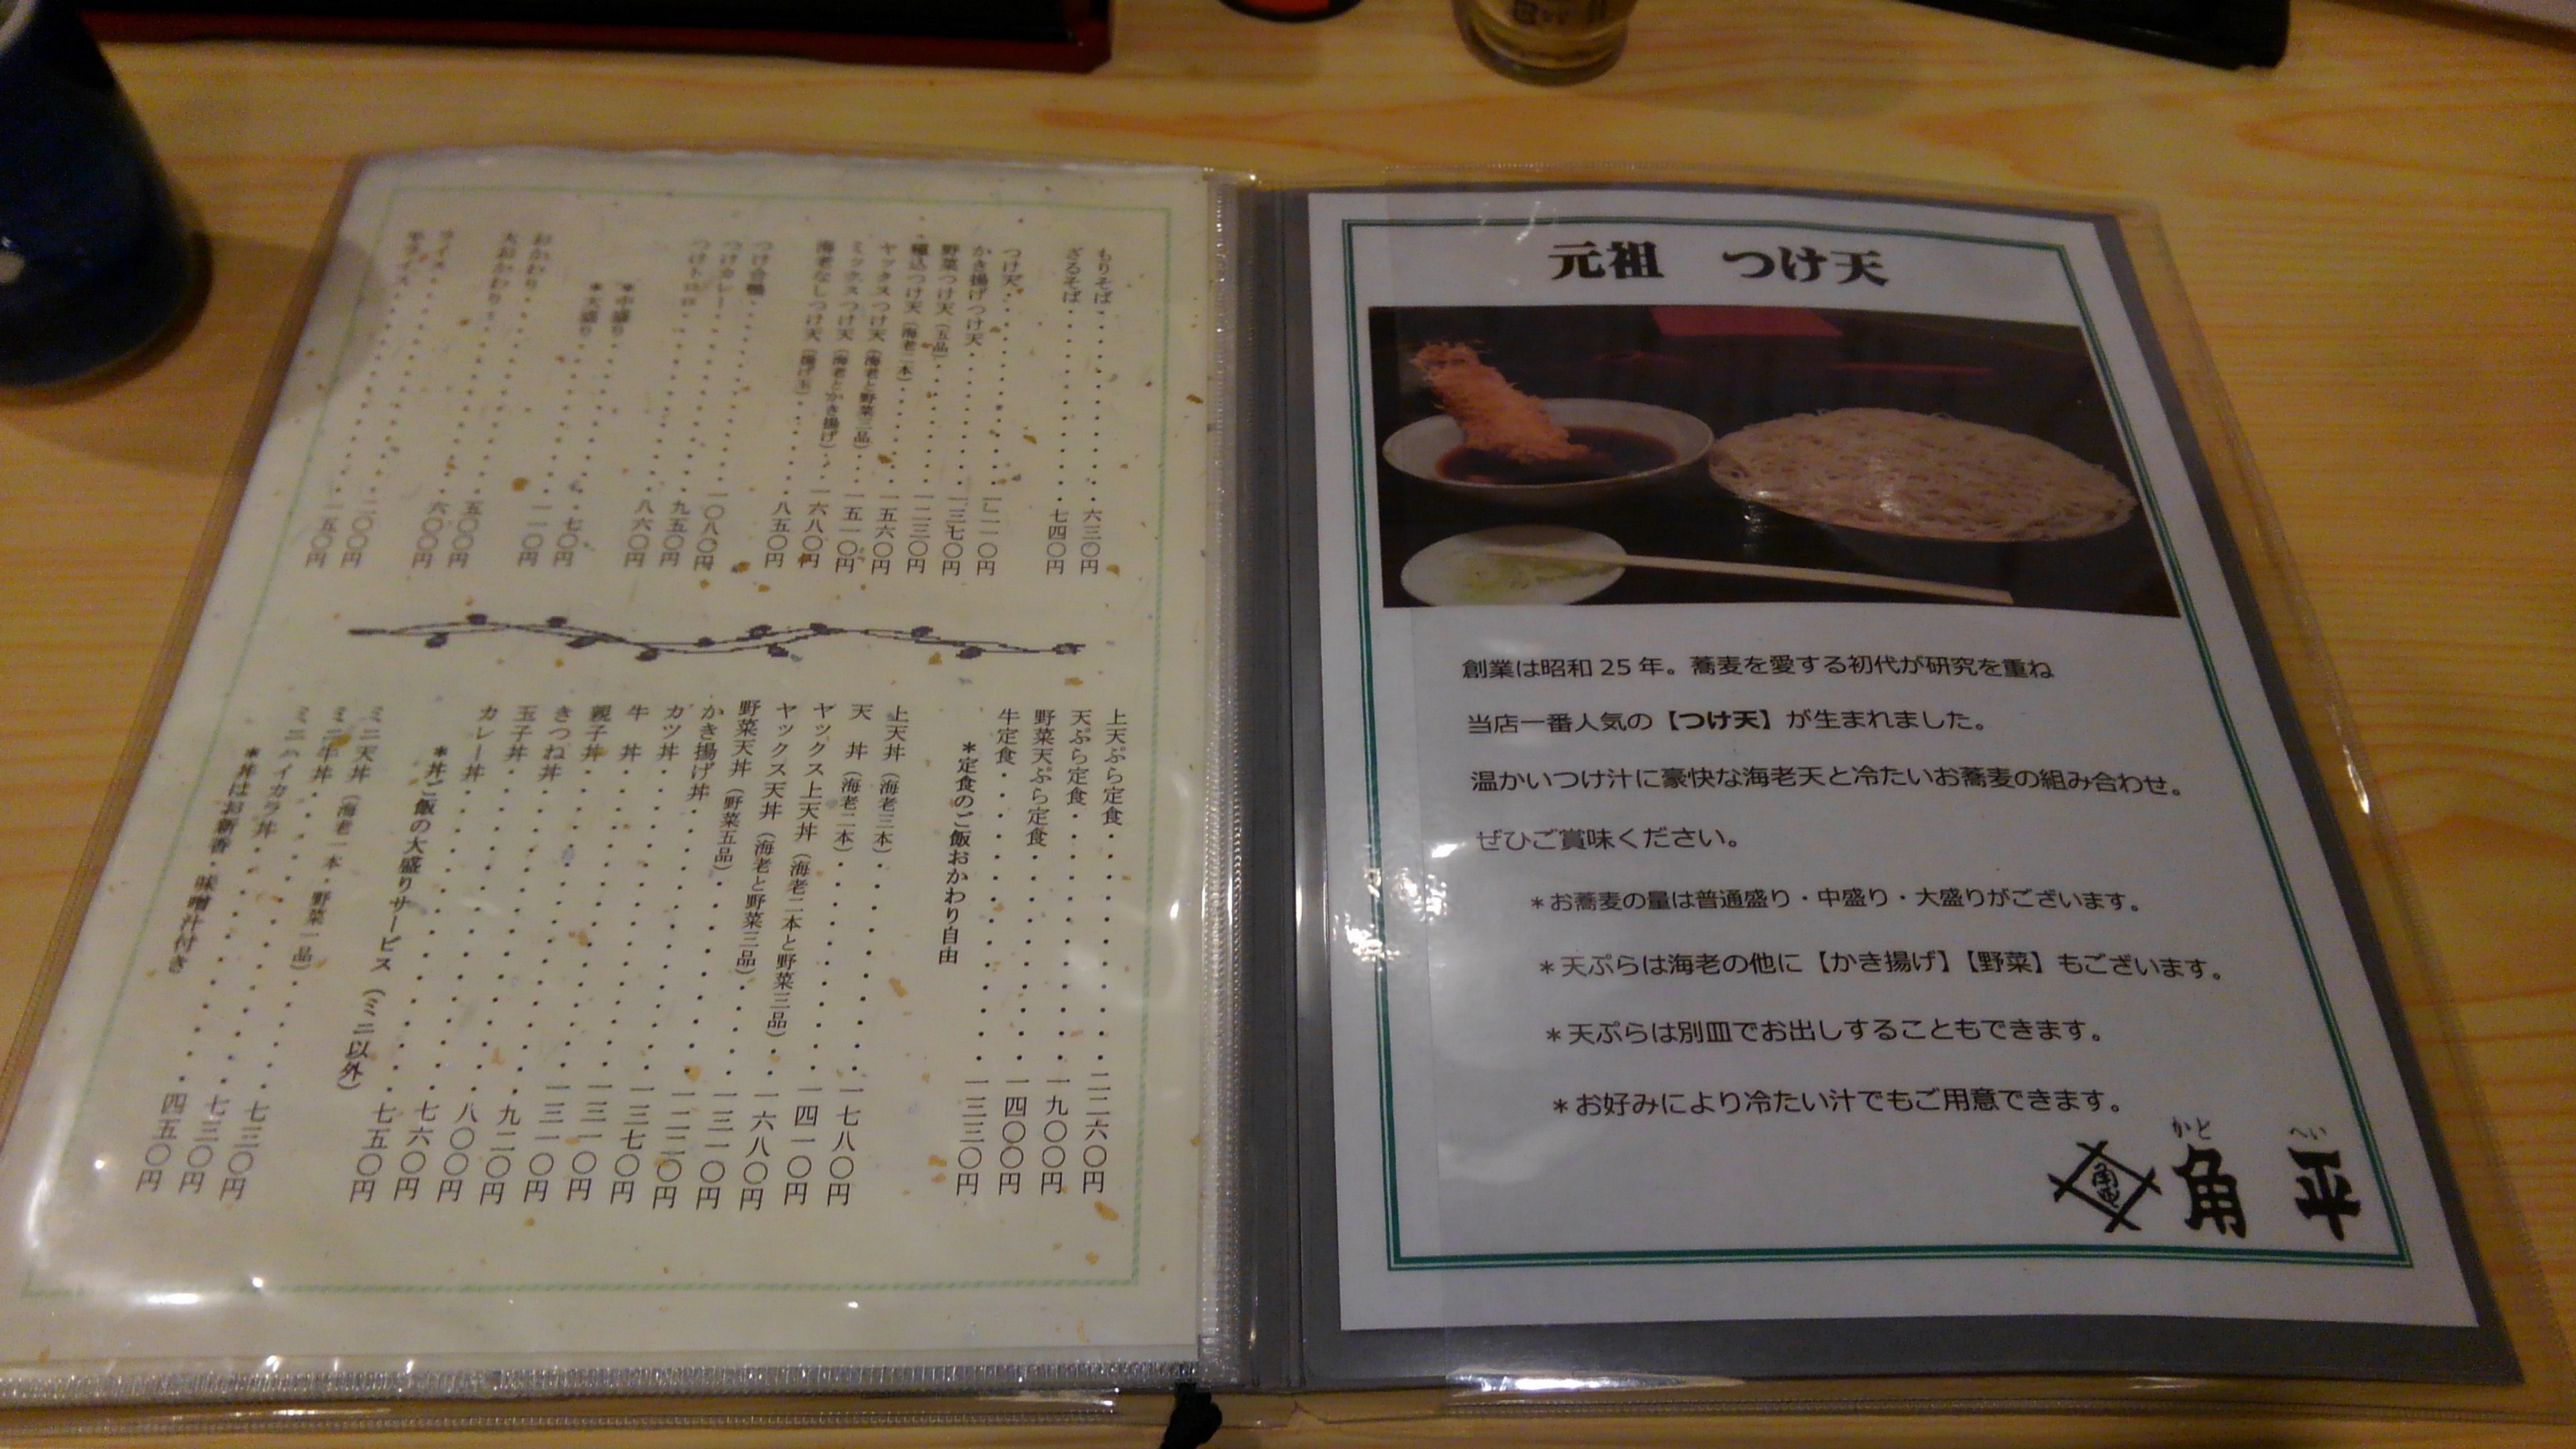 もりそば 六三〇円
ざるそば 七四〇円
つけ天
かき揚げつけ天 一三七〇円
野菜つけ天（五品） 一二三〇円
種込つけ天（海老二本） 一五六〇円
ヤックスつけ天（海老と野菜三品） 一五一〇円
ミックスつけ天（海老とかき揚げ） 一六八〇円
海老なしつけ天（揚げ玉） 八五〇円
つけ合鴨 一〇八〇円
つけカレー 九五〇円
つけトロロ 八六〇円
＊中盛り 七〇円
＊大盛り 一一〇円
おかわり 五〇〇円
大おかわり 六〇〇円
ライス 二〇〇円
半ライス 一五〇円
上天ぷら定食 二二六〇円
天ぷら定食 一九〇〇円
野菜天ぷら定食 一四〇〇円
牛定食 一三三〇円
＊定食のご飯おかわり自由
上天丼（海老三本） 一七八〇円
天 丼（海老二本） 一四一〇円
ヤックス上天丼（海老二本と野菜三品） 一六八〇円
ヤックス天丼（海老と野菜三品） 一三一〇円
野菜天丼（野菜五品） 一二二〇円
かき揚げ丼 一三七〇円
カツ丼 一三一〇円
牛 丼 一三一〇円
親子丼 九二〇円
きつね丼 八〇〇円
玉子丼 七六〇円
カレー丼 七五〇円
＊丼ご飯の大盛りサービス（ミニ以外）
ミニ天丼（海老一本・野菜一品） 七三〇円
ミニ牛丼 七三〇円
ミニハイカラ丼 四五〇円
＊丼はお新香・味噌汁付き
元祖 つけ天
創業は昭和25年。蕎麦を愛する初代が研究を重ね
当店一番人気の【つけ天】が生まれました。
温かいつけ汁に豪快な海老天と冷たいお蕎麦の組み合わせ。
ぜひご賞味ください。
＊お蕎麦の量は普通盛り・中盛り・大盛りがございます。
＊天ぷらは海老の他に【かき揚げ】【野菜】もございます。
＊天ぷらは別皿でお出しすることもできます。
＊お好みにより冷たい汁でもご用意できます。
かど へい
角平